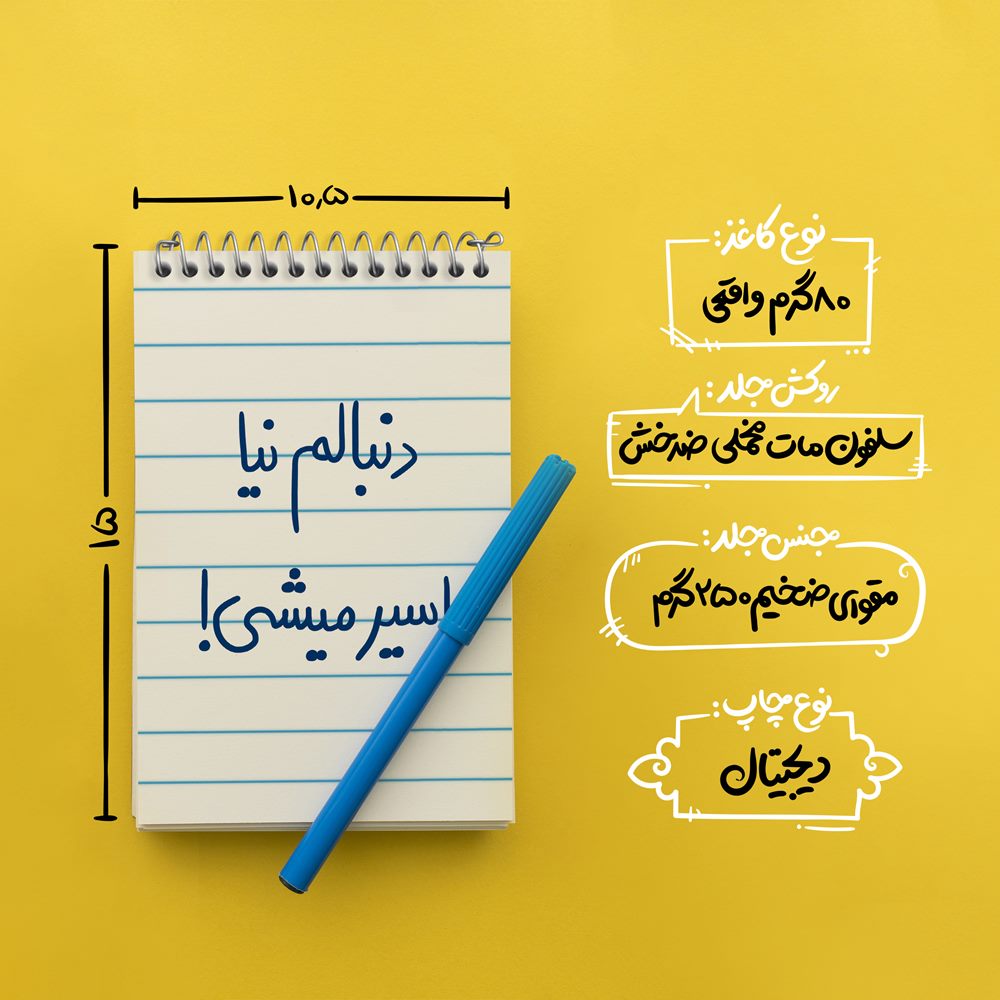 ۱۰,۵
۱۵
دنبالم نیا
اسیر میشی!
نوع کاغذ:
۸۰گرم واقعی
روکش جلد:
سلفون مات مخملی ضدخش
جنس جلد:
مقوای ضخیم ۲۵۰گرم
نوع چاپ:
دیجیتال